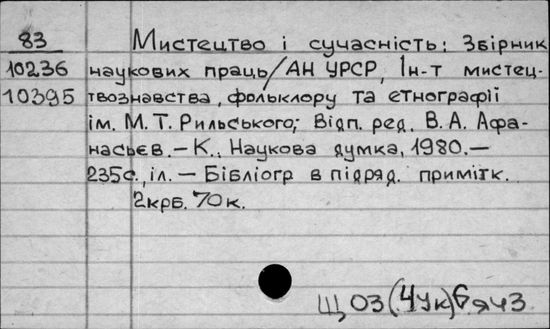 83 Мистецтво і сучасність: Збірник
10236 наукових праць/АН УРСР, Ін-т мистец-
10395 твознавства, фольклору та етнографії
ім. М. Т. Рильського; Відп. ред. В. А. Афа-
насьєв. – К., Наукова думка, 1980. –
235с., іл. – Бібліогр в підряд. примітк.
2крб. 70к.
Щ03(4Ук)6я43